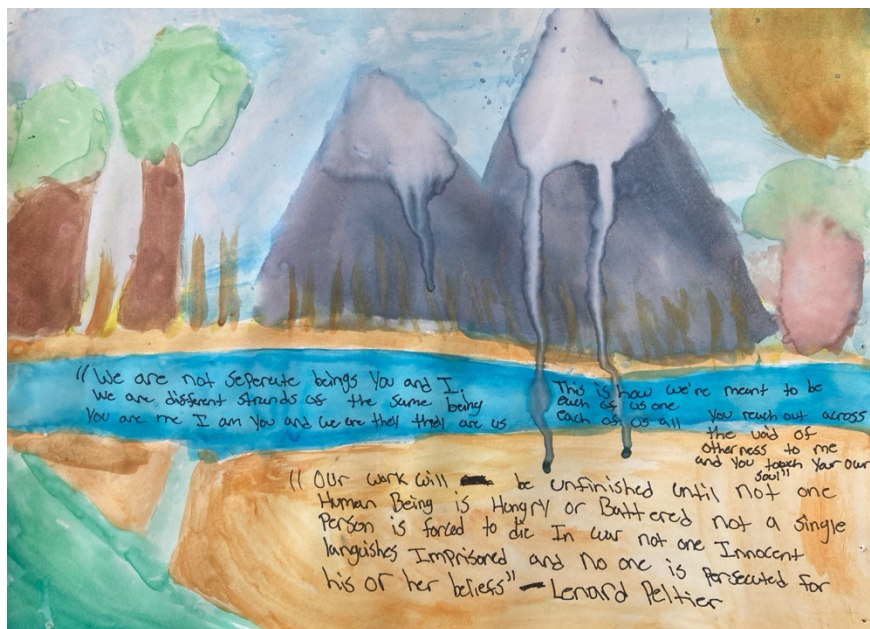 "We are not seperate beings You and I.
We are different strands of the same being
You are me I am You and we are they they are us
This is how we're meant to be
each of us one
each of us all
You reach out across
the void of
otherness to me
and you touch Your own
soul"
"Our work will be unfinished until not one
Human Being is Hungry or Battered not a single
Person is forced to die In war not one Innocent
languishes Imprisoned and no one is Persecuted for
his or her beliefs" - Lenard Peltier